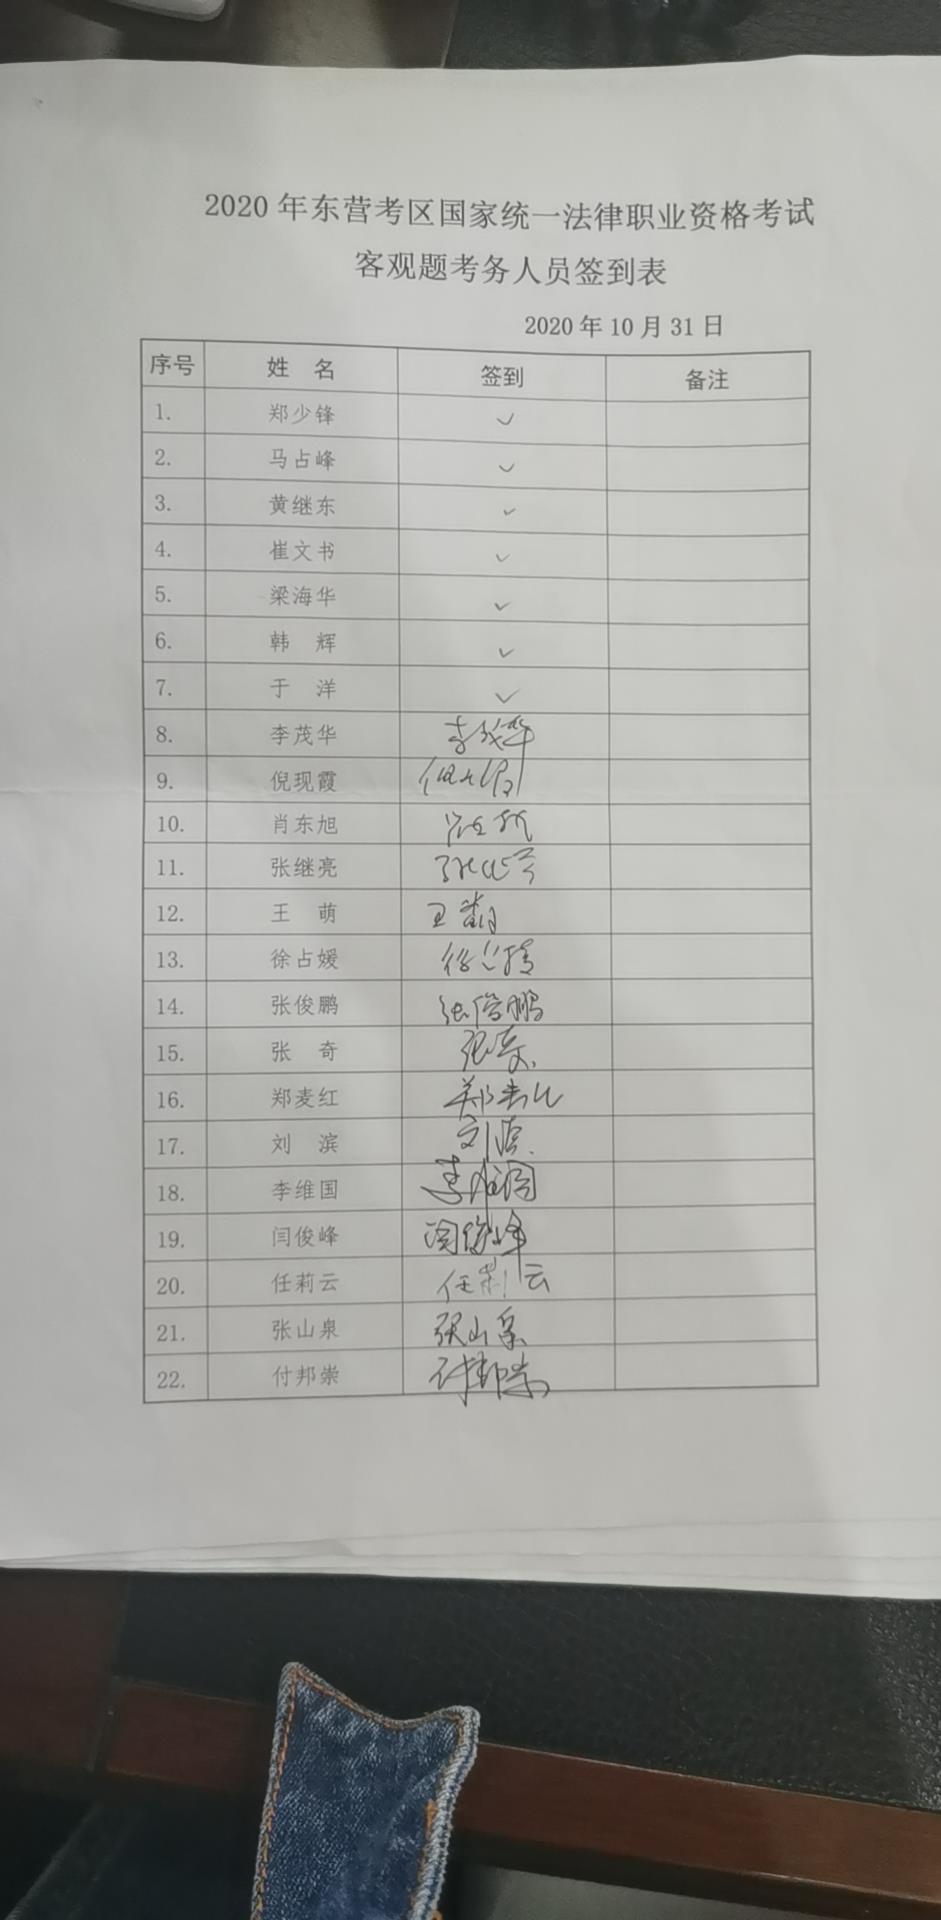 2020 年东营考区国家统一法律职业资格考试
客观题考务人员签到表
2020 年 10 月 31 日
序号 姓 名 签到 备注
1. 郑少锋 ✓
2. 马占峰 ✓
3. 黄继东 ✓
4. 崔文书 ✓
5. 梁海华 ✓
6. 韩 辉 ✓
7. 于 洋 ✓
8. 李茂华 李茂华
9. 倪现霞
10. 肖东旭
11. 张继亮
12. 王 萌 王萌
13. 徐占媛
14. 张俊鹏 张俊鹏
15. 张 奇 张奇
16. 郑麦红 郑麦红
17. 刘 滨 刘滨
18. 李维国 李维国
19. 闫俊峰 闫俊峰
20. 任莉云 任莉云
21. 张山泉 张山泉
22. 付邦崇 付邦崇